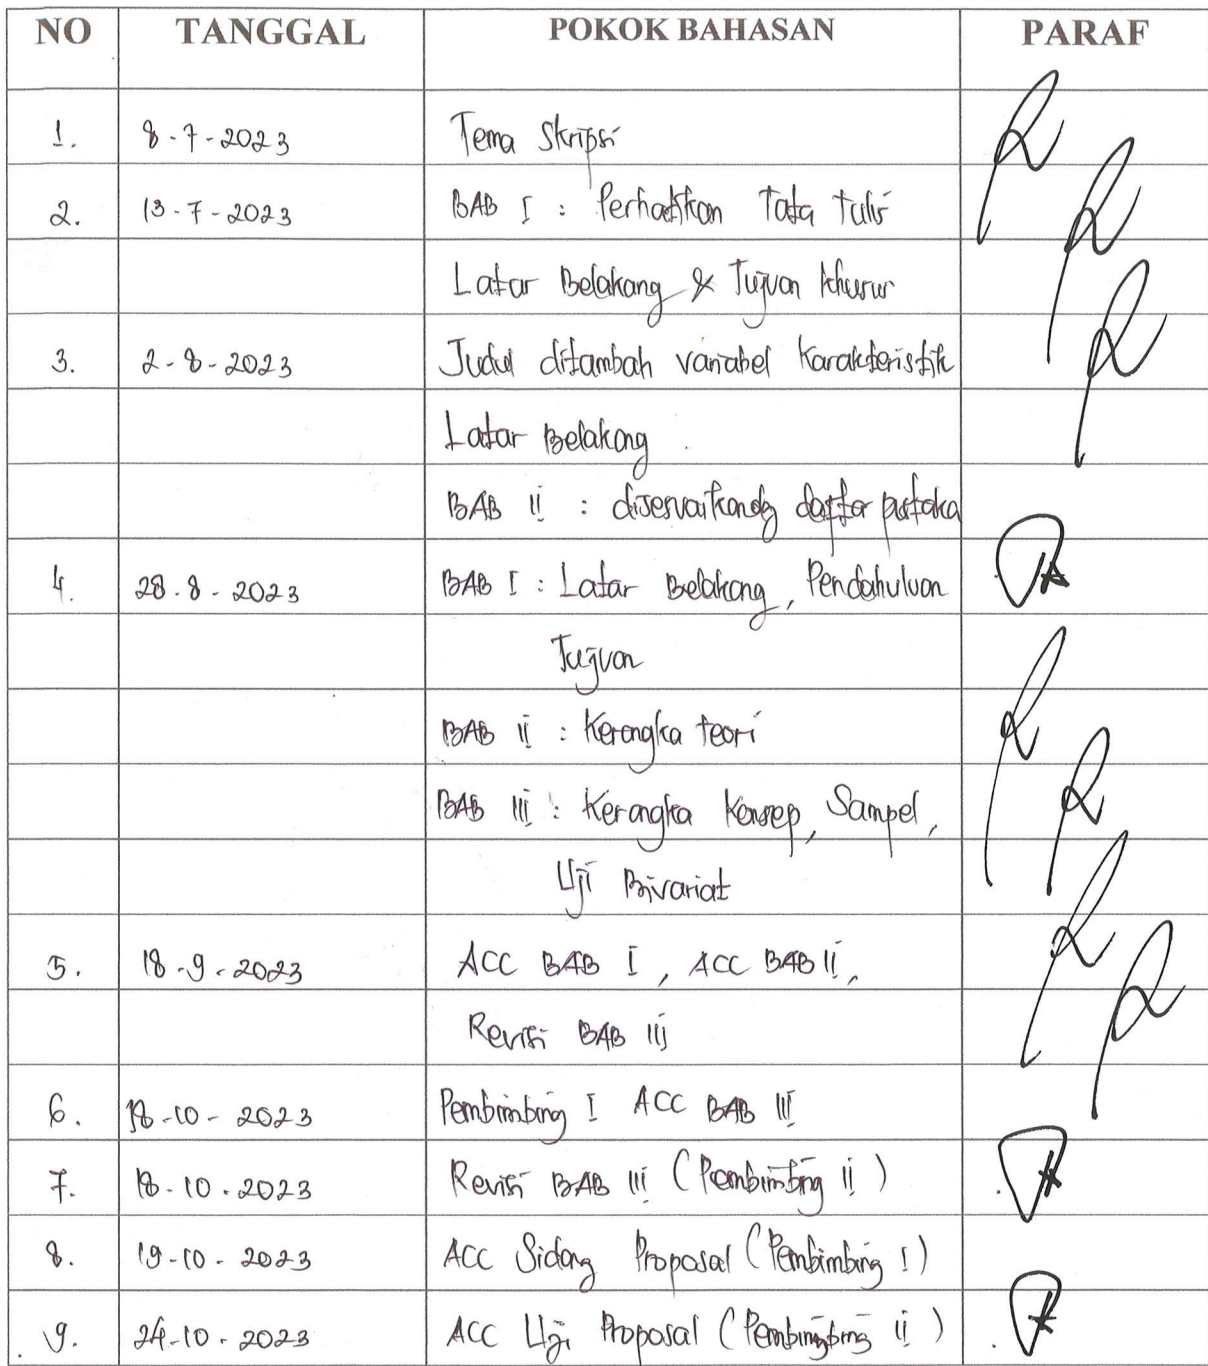 NO TANGGAL POKOK BAHASAN PARAF
1. 8-7-2023 Tema Skripsi
2. 13-7-2023 BAB I : Perhatikan Tata tulis
Latar Belakang & Tujuan khusus
3. 2-8-2023 Judul ditambah variabel Karakteristik
Latar Belakang
BAB II : disesuaikan dg daftar pustaka
4. 28.8-2023 BAB I : Latar Belakang, Pendahuluan
Tujuan
BAB II : Kerangka teori
BAB III : Kerangka Konsep, Sampel,
Uji Bivariat
5. 18-9-2023 ACC BAB I, ACC BAB II,
Revisi BAB III
6. 18-10-2023 Pembimbing I ACC BAB III
7. 18-10.2023 Revisi BAB III (Pembimbing II)
8. 19-10-2023 ACC Sidang Proposal (Pembimbing I)
9. 24-10-2023 ACC Uji Proposal (Pembingbing II)